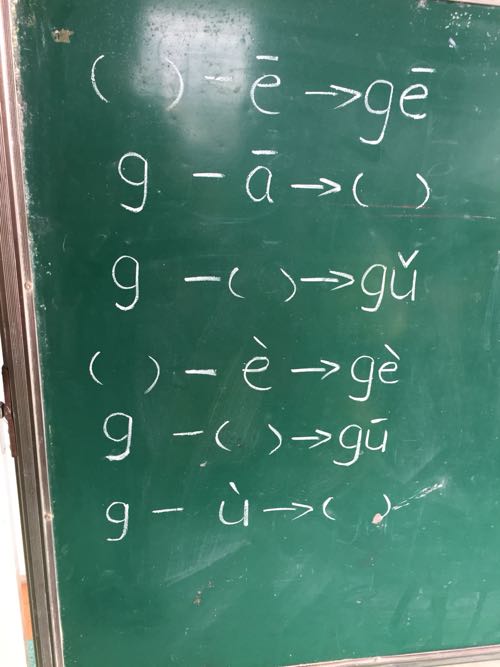 ( ) - ē → gē
g - ā → ( )
g - ( ) → gǔ
( ) - è → gè
g - ( ) → gū
g - ù → ( )